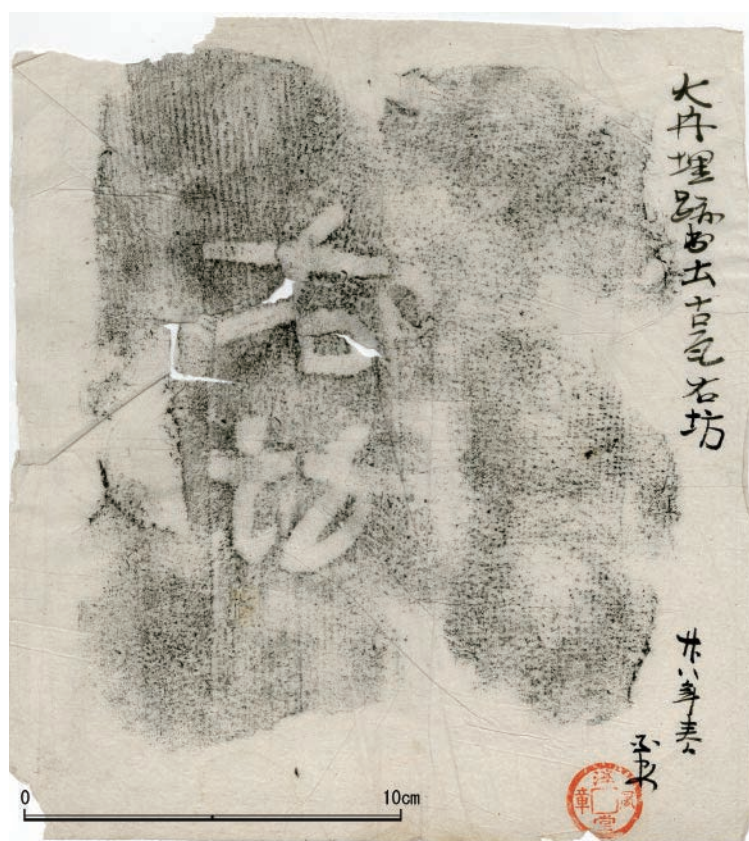 大内裡跡出土古瓦右坊
右坊
廿八年春
0 10cm